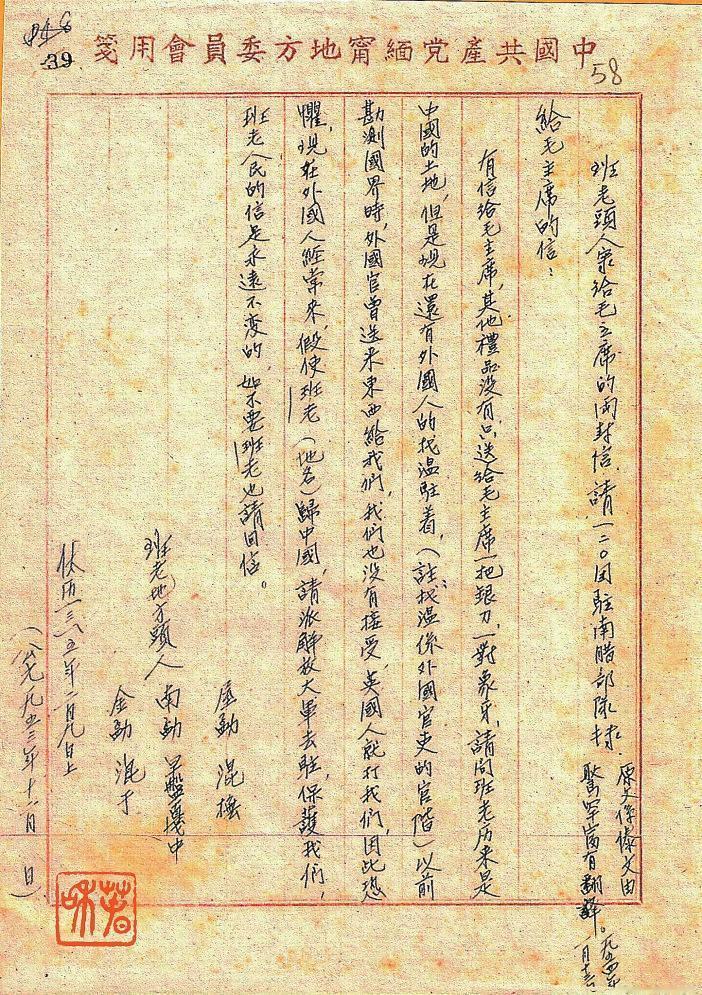 58
39
中國共產党緬甯地方委員會用箋
班老頭人寫給毛主席的两封信，請一二〇团駐南腊部隊轉。
原文係傣文由
罕富有翻譯。一九五四年
一月十三
給毛主席的信：
有信給毛主席，其他禮品没有，只送給毛主席一把銀刀，一對象牙，請問班老历来是
中國的土地，但是現在還有外國人的找温駐着，（註：找温係外國官吏的官階）以前
勘測國界時，外國官曾送来東西給我們，我們也没有接受，英國人就打我們，因此恐
懼，現在外國人經常来，假使班老（地名）歸中國，請派解放大軍去駐，保護我們，
班老人民的信是永遠不変的，如不要班老也請回信。
屋勐 混
班老地方頭人 南勐 戛中
金勐 混
傣历一三八五年二月九日上
（公元一九五三年十二月 日）